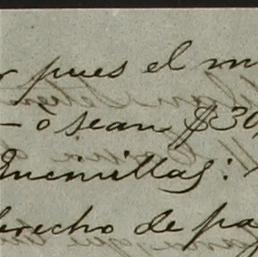 pues el m
- ó sean $30
Guemillas:
derecho de pa